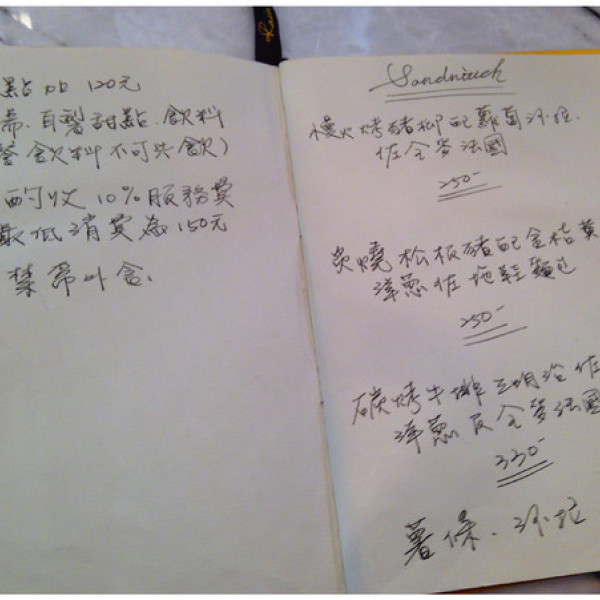 點加 120元
自製甜點.飲料
飲料不可共飲)
酌收10%服務費
最低消費為150元
禁帶外食.
Sandwich
慢火烤豬柳配蘑菇沙拉.
佐全麥法國
250-
炭燒松板豬配金桔黃
洋蔥佐拖鞋麵包
250-
碳烤牛排三明治佐
洋蔥及全麥法國
330-
薯條.沙拉